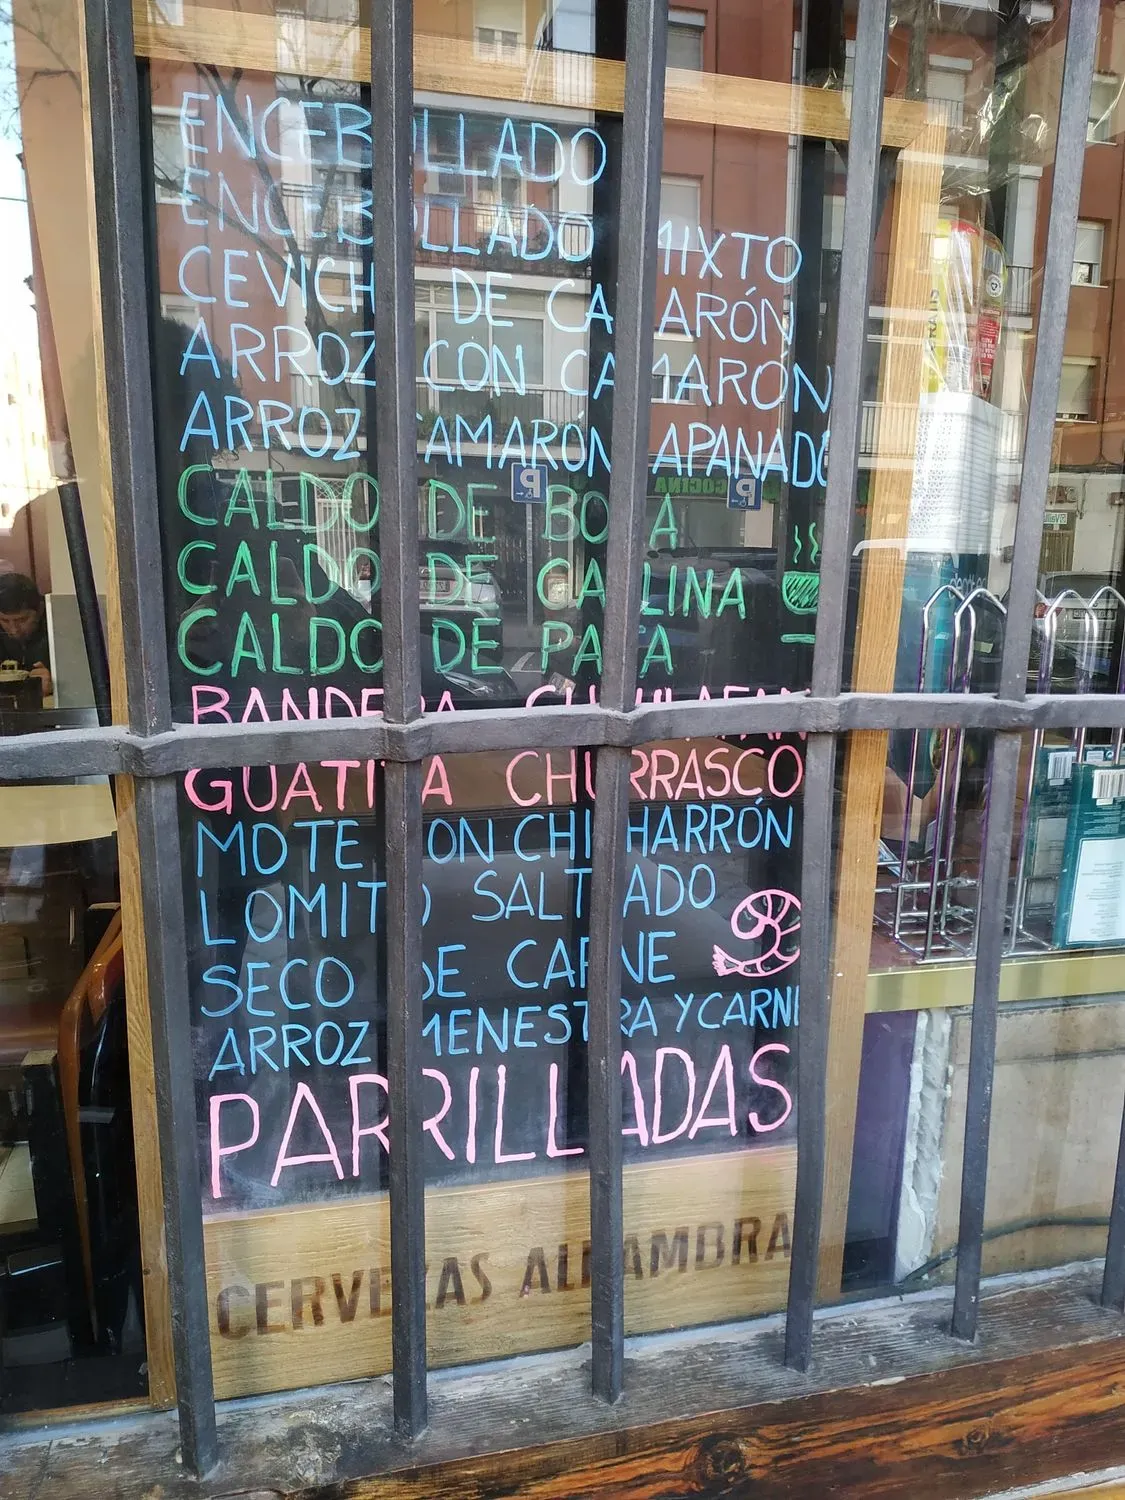 ENCEBOLLADO
ENCEBOLLADO MIXTO
CEVICHE DE CAMARÓN
ARROZ CON CAMARÓN
ARROZ CAMARÓN APANADO
CALDO DE BOLA
CALDO DE GALLINA
CALDO DE PATA
BANDERA
GUATITA CHURRASCO
MOTE CON CHICHARRÓN
LOMITO SALTEADO
SECO DE CARNE
ARROZ MENESTRA Y CARNE
PARRILLADAS
CERVEZAS ALHAMBRA